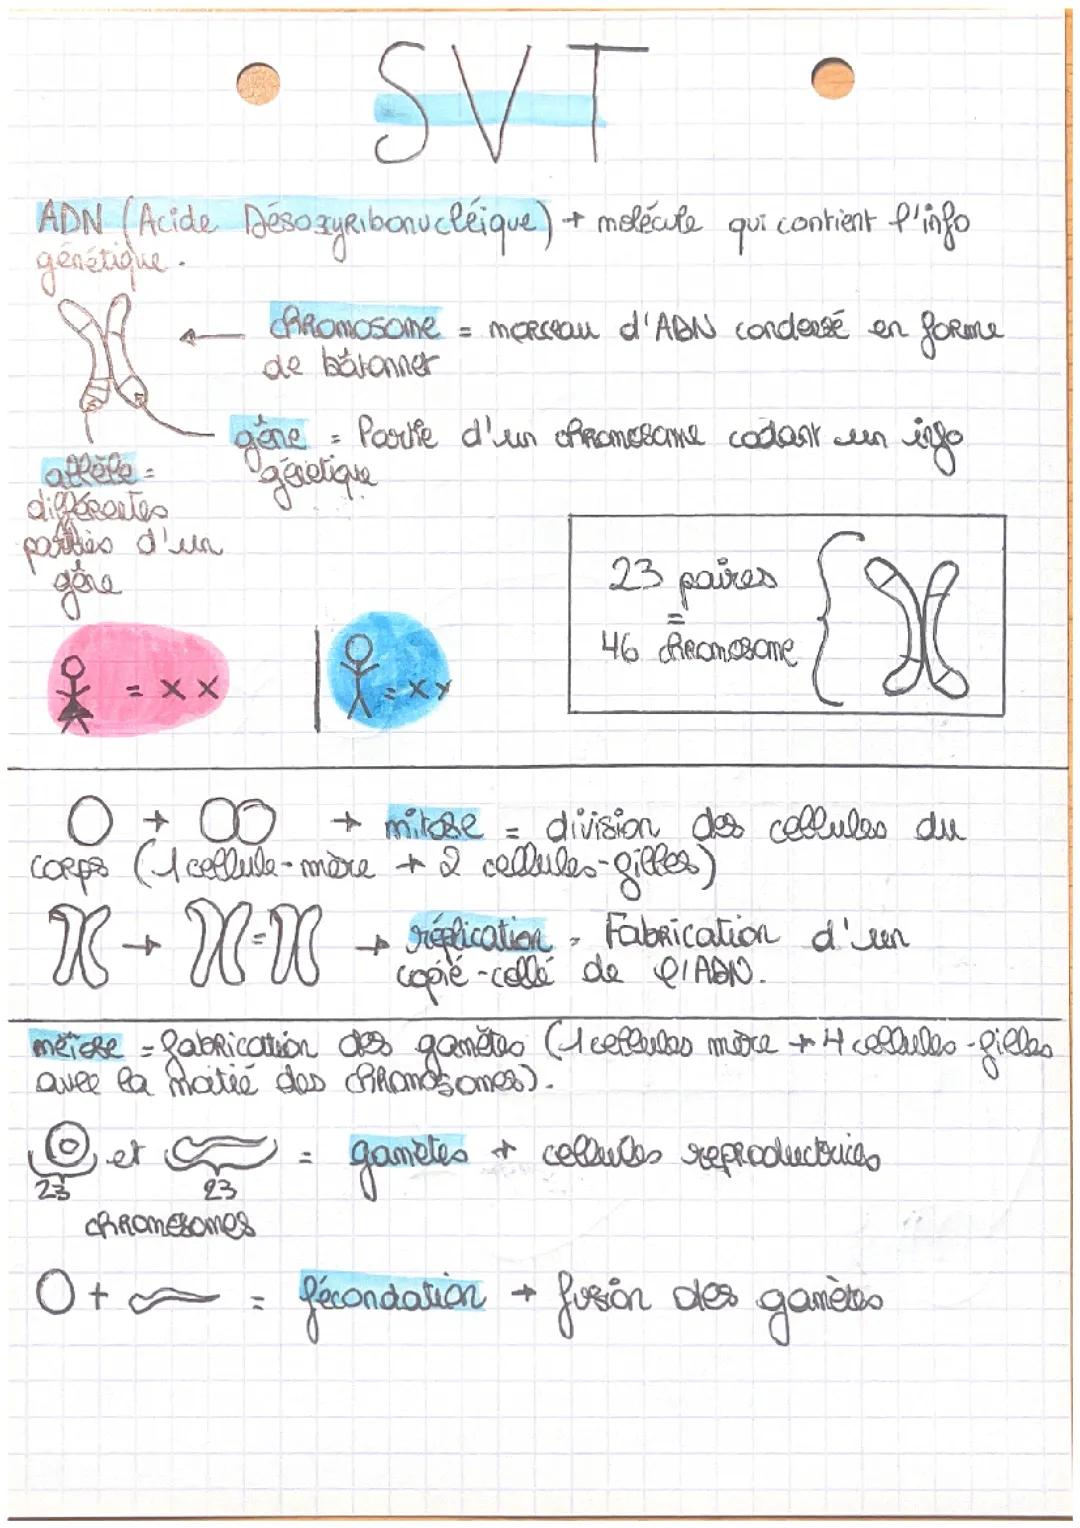 SVT
ADN (Acide Désoxyribonucléique) → molécule qui contient l'info
génétique.
chromosome = morceau d'ADN condensé en forme
de bâtonner
gène = Partie d'un chromosome codant un info
génétique
allèle =
différentes
parties d'un
gène
23 paires
=
46 chromosome
= X X
= X Y
→ → mitose = division des cellules du
corps (1 cellule-mère → 2 cellules-filles)
→ = → réplication = Fabrication d'un
copié-collé de l'ADN.
méiose = fabrication des gamètes (1 cellules mère → 4 cellules-filles
avec la moitié des chromosomes).
et = gamètes → cellules reproductrices
23 23
chromosomes
+ = fécondation → fusion des gamètes